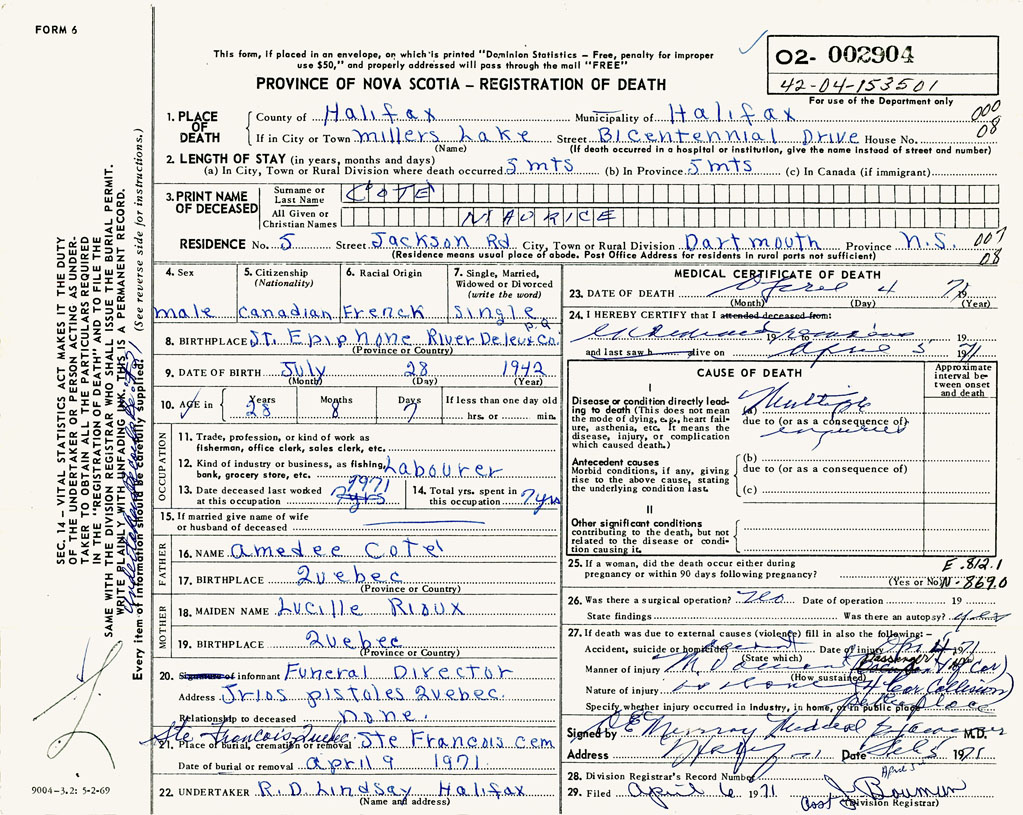 FORM 6
This form, if placed in an envelope, on which is printed "Dominion Statistics – Free, penalty for improper
use $50," and properly addressed will pass through the mail "FREE"
PROVINCE OF NOVA SCOTIA – REGISTRATION OF DEATH
02- 002904
42-04-153501
For use of the Department only
1. PLACE OF DEATH County of Halifax Municipality of Halifax 000
If in City or Town Millers Lake Street BiCentennial Drive House No. 08
(Name) (If death occurred in a hospital or institution, give the name instead of street and number)
2. LENGTH OF STAY (in years, months and days)
(a) In City, Town or Rural Division where death occurred 5 mts (b) In Province 5 mts (c) In Canada (if immigrant)
3. PRINT NAME OF DECEASED Surname or Last Name COTE
All Given or Christian Names MAURICE
RESIDENCE No. 5 Street Jackson Rd City, Town or Rural Division Dartmouth Province N.S. 007
(Residence means usual place of abode. Post Office Address for residents in rural parts not sufficient) 08
4. Sex 5. Citizenship (Nationality) 6. Racial Origin 7. Single, Married, Widowed or Divorced (write the word)
male Canadian French Single
P.Q
8. BIRTHPLACE St. Epiphone River Deleux Co.
(Province or Country)
9. DATE OF BIRTH July 28 1942
(Month) (Day) (Year)
10. AGE in Years Months Days If less than one day old
28 8 7 hrs. or min.
OCCUPATION
11. Trade, profession, or kind of work as
fisherman, office clerk, sales clerk, etc.
12. Kind of industry or business, as fishing,
bank, grocery store, etc. Labourer
13. Date deceased last worked at this occupation 1971 7yrs 14. Total yrs. spent in this occupation 7yrs
15. If married give name of wife
or husband of deceased
FATHER
16. NAME Amedee Cote
17. BIRTHPLACE Quebec
(Province or Country)
MOTHER
18. MAIDEN NAME Lucille Rioux
19. BIRTHPLACE Quebec
(Province or Country)
20. Signature of informant Funeral Director
Address Trios pistoles Quebec.
Relationship to deceased none.
Ste Francois Quebec
21. Place of burial, cremation or removal Ste Francois cem
Date of burial or removal April 9 1971
22. UNDERTAKER R.D. Lindsay Halifax
(Name and address)
MEDICAL CERTIFICATE OF DEATH
23. DATE OF DEATH April 4 71
(Month) (Day) 19 (Year)
24. I HEREBY CERTIFY that I attended deceased from:
examined remains 19 to 19
and last saw h alive on April 5 1971
CAUSE OF DEATH
Approximate interval between onset and death
I
Disease or condition directly leading to death (This does not mean the mode of dying, e.g., heart failure, asthenia, etc. It means the disease, injury, or complication which caused death.)
(a) Multiple
due to (or as a consequence of)
injuries
Antecedent causes
Morbid conditions, if any, giving rise to the above cause, stating the underlying condition last.
(b)
due to (or as a consequence of)
(c)
II
Other significant conditions
contributing to the death, but not related to the disease or condition causing it.
25. If a woman, did the death occur either during E.812.1
pregnancy or within 90 days following pregnancy? (Yes or No) N-869.0
26. Was there a surgical operation? No Date of operation 19
State findings Was there an autopsy? yes
27. If death was due to external causes (violence) fill in also the following:–
Accident, suicide or homicide Date of injury Apr 4 1971
(State which) Passenger
Manner of injury
(How sustained)
Nature of injury as above (4 Car Collision)
Specify whether injury occurred in industry, in home, or in public place
Signed by Murray Medical M.D.
Address Date 5 1971
April 5
28. Division Registrar's Record Number
29. Filed April 6 1971 Asst J Bowman
(Division Registrar)
SEC. 14 – VITAL STATISTICS ACT MAKES IT THE DUTY
OF THE UNDERTAKER OR PERSON ACTING AS UNDERTAKER
TO OBTAIN ALL THE PARTICULARS REQUIRED
IN THE "REGISTRATION OF DEATH" AND TO FILE THE
SAME WITH THE DIVISION REGISTRAR WHO SHALL ISSUE THE BURIAL PERMIT.
WRITE PLAINLY WITH UNFADING INK. THIS IS A PERMANENT RECORD.
Every item of information should be carefully supplied. (See reverse side for instructions.)
9004-3.2: 5-2-69